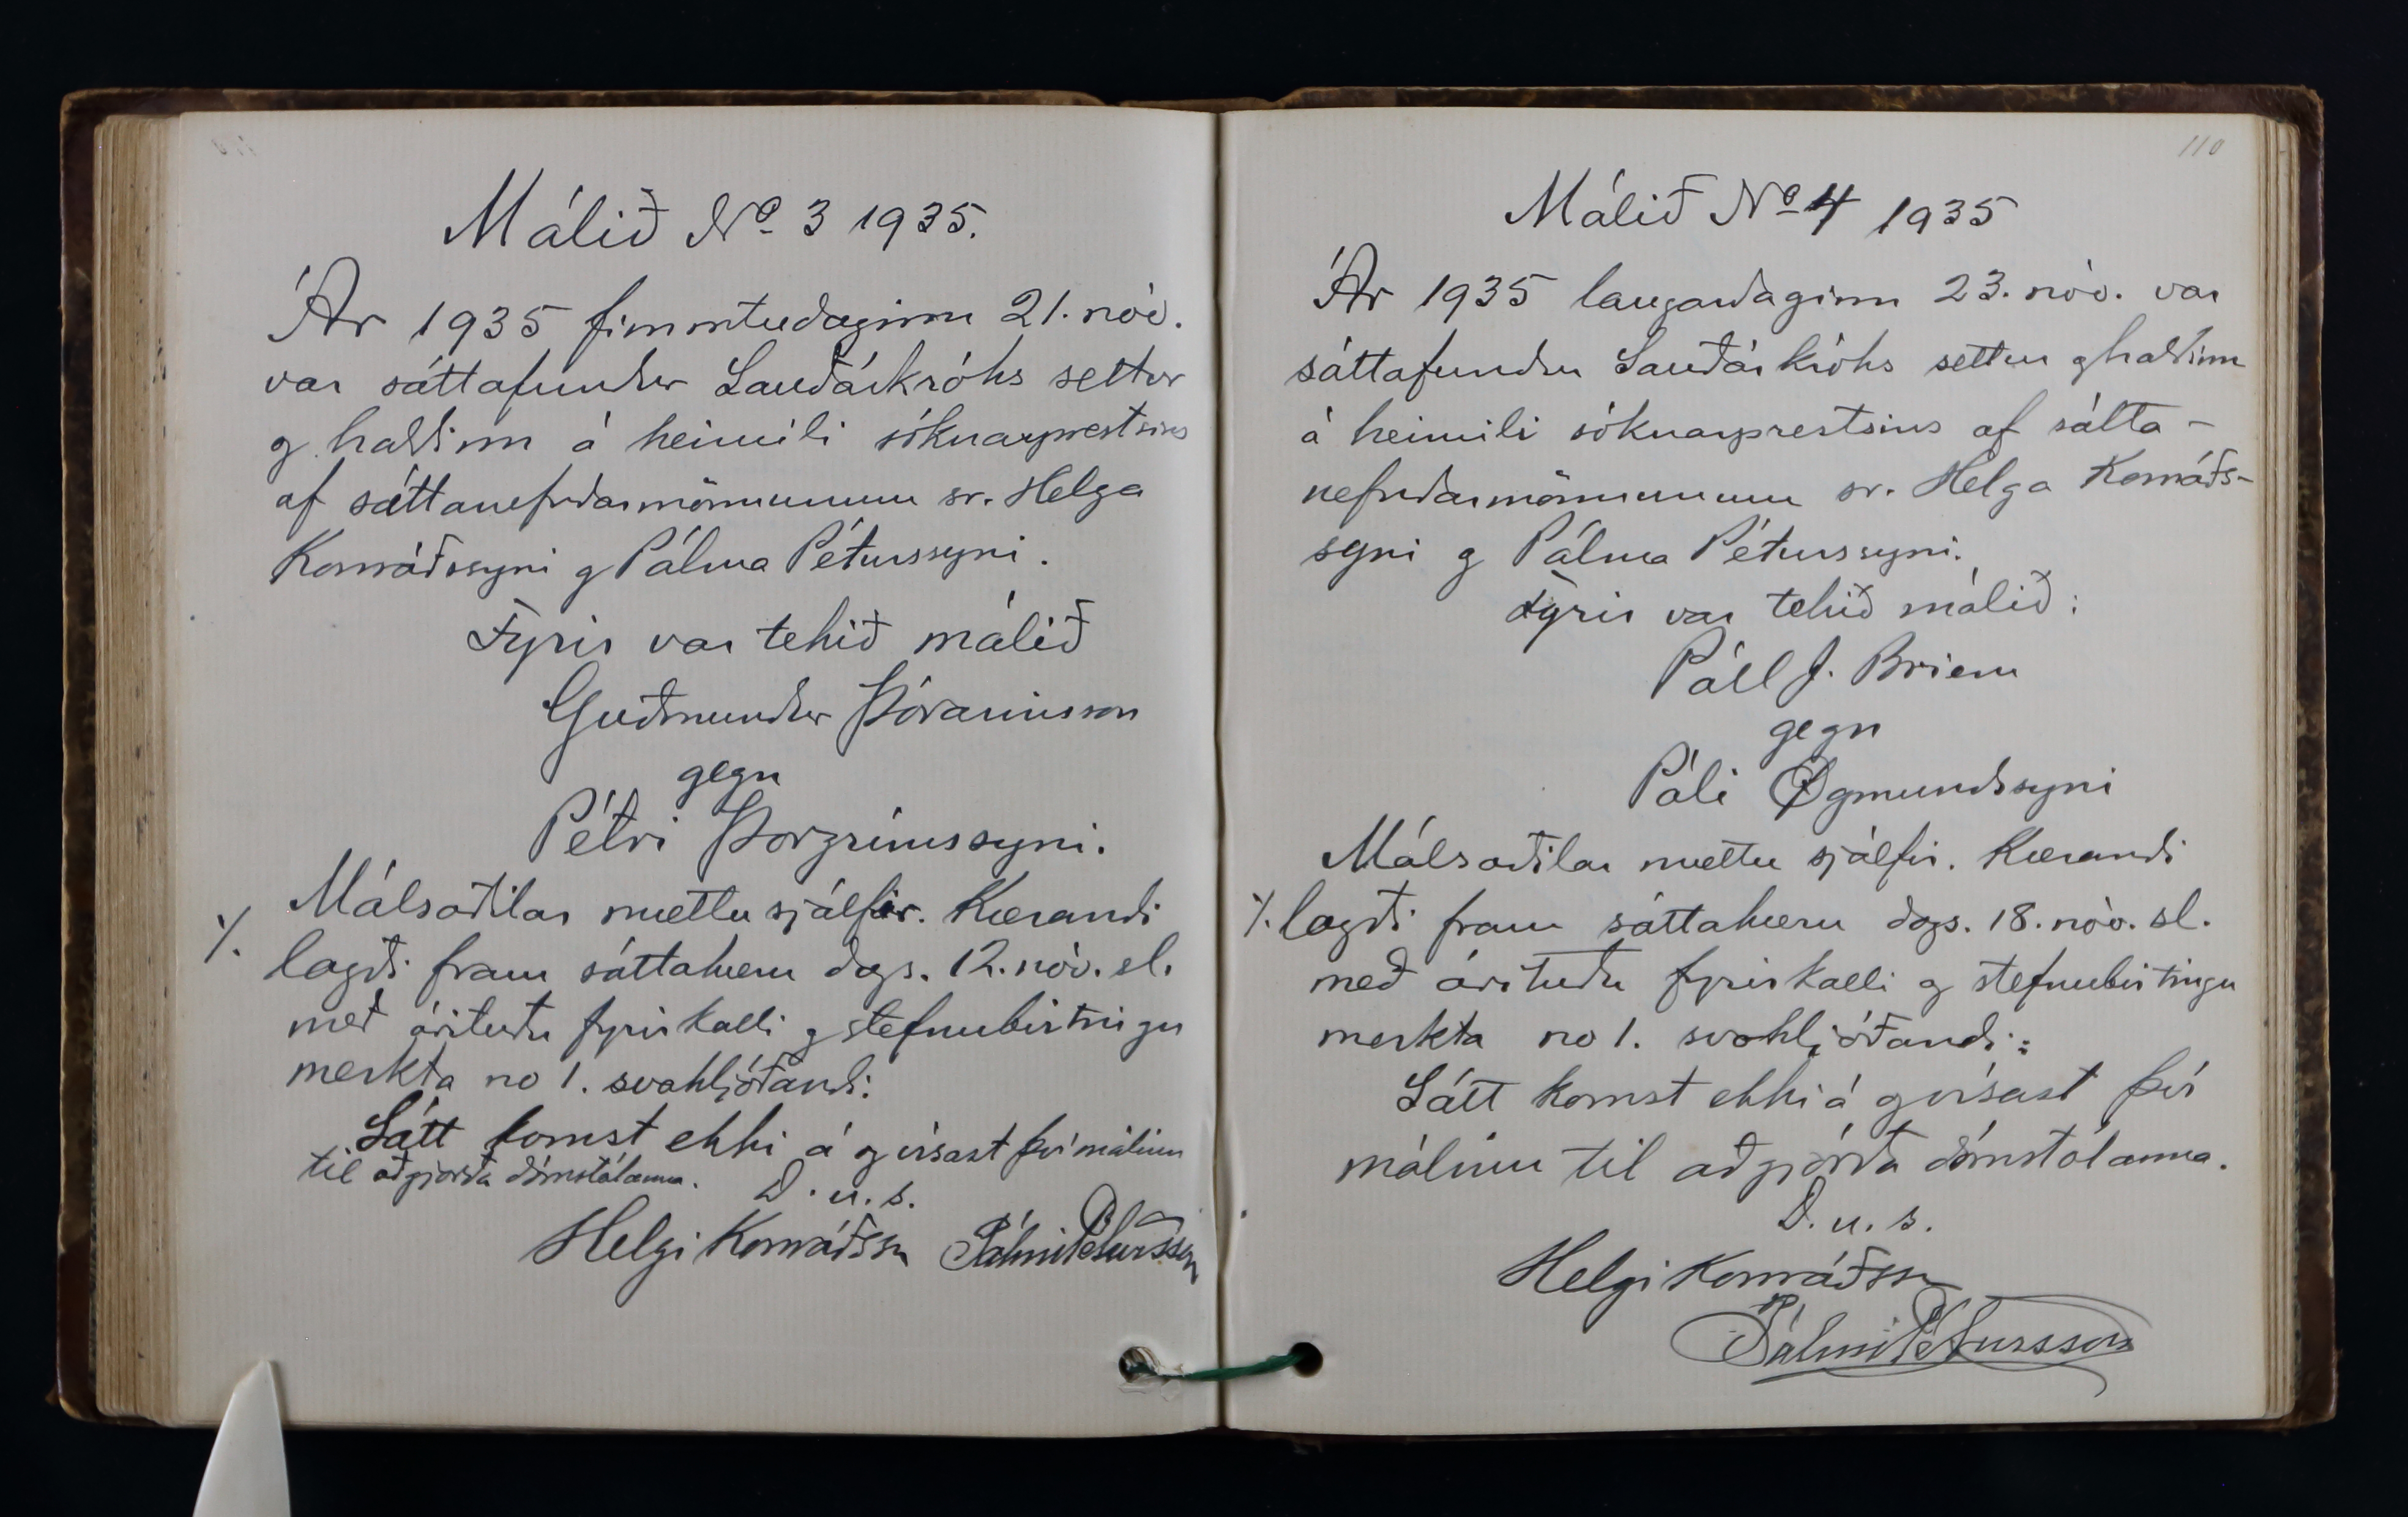 Málið No. 3 1935.
Ár 1935 fimmtudaginn 21. nóv.
var sáttafundur Sauðárkróks settur
og haldinn á heimili sóknarprestsins
af sáttanefndarmönnunum sr. Helga
Konráðssyni og Pálma Péturssyni.
Fyrir var tekið málið
Guðmundur Þórarinsson
gegn
Pétri Þorgrímssyni.
Málsaðilar mættu sjálfir. Kærandi
⁒ lagði fram sáttakæru dags. 12. nóv. sl.
með árituðu fyrirkalli og stefnubirtingu
merkta no 1. svohljóðandi:
Sátt komst ekki á og vísast því málinu
til aðgjörða dómstólanna. D. u. s.
Helgi Konráðsson Pálmi Pétursson
110
Málið No. 4 1935
Ár 1935 laugardaginn 23. nóv. var
sáttafundur Sauðárkróks settur og haldinn
á heimili sóknarprestsins af sátta-
nefndarmönnunum sr. Helga Konráðs-
syni og Pálma Péturssyni.
Fyrir var tekið málið:
Páll J. Briem
gegn
Páli Øgmundssyni
Málsaðilar mættu sjálfir. Kærandi
⁒ lagði fram sáttakæru dags. 18. nóv. sl.
með árituðu fyrirkalli og stefnubirtingu
merkta no 1. svohljóðandi:
Sátt komst ekki á og vísast því
málinu til aðgjörða dómstólanna.
D. u. s.
Helgi Konráðsson
Pálmi Pétursson